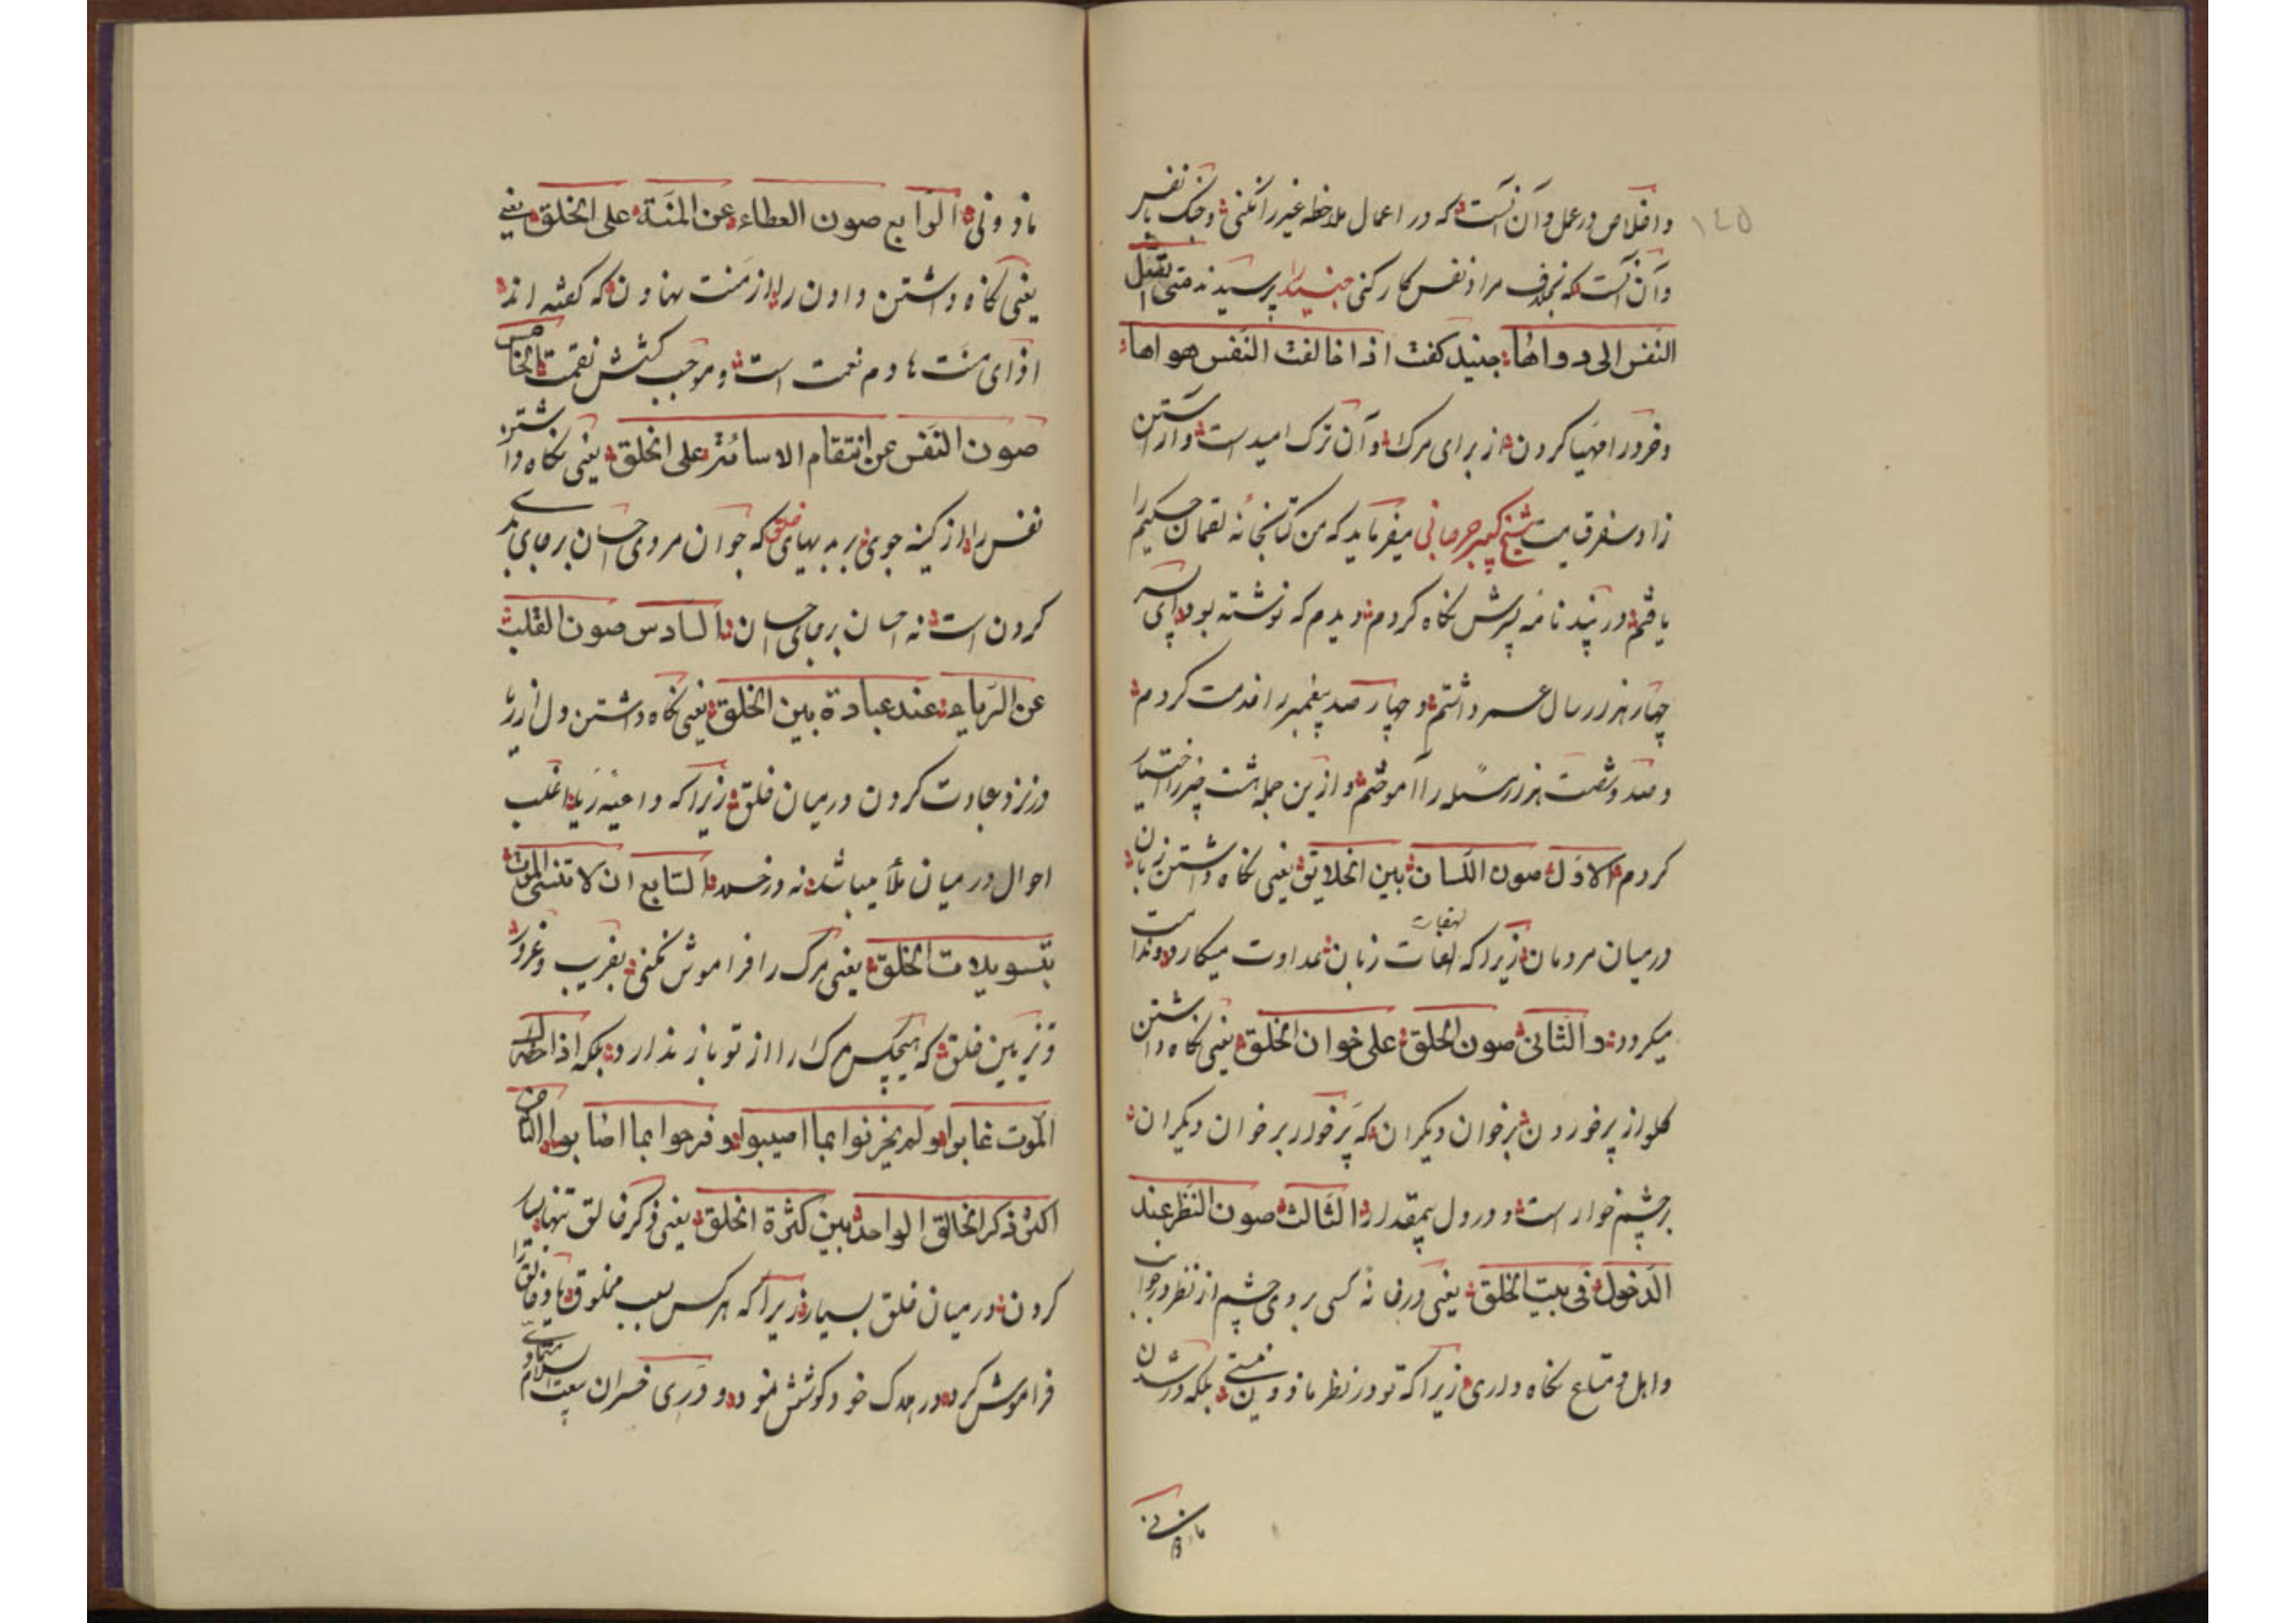 ۱۴۵
واخلاص در عمل وآن آنست که در اعمال ملاحظه غیر را نکنی وجنک با نفس
وآن آنست که بخلاف مراد نفس کار کنی جنید را پرسیدند متی تقبل
النفس الی دواها جنید کفت اذا خالفت النفس هواها
وخود را مهیا کردن از برای مرک وآن ترک امید است وآراستن
زاد سفر قیامت شیخ کبیر جرجانی میفرماید که من کتابخانه لقمان حکیم را
یافتم در پند نامه پسرش نکاه کردم دیدم که نوشته بود ای پسر
چهار هزار سال عمر داشتم وچهار صد پیغمبر را خدمت کردم
وصد وشصت هزار مسئله را آموختم واز این جمله هشت چیز را اختیار
کردم الاوّل صون اللسان بین الخلایق یعنی نکاه داشتن زبان
در میان مردمان زیرا که لغات زبان عداوت میکارد وندامت
هفوات
میکردد والثانی صون الحلق علی خوان الخلق یعنی نکاه داشتن
کلو از پر خوردن بر خوان دیکران که پر خوار بر خوان دیکران
بر چشم خوار است ودر دل بیمقدار الثالث صون النظر عند
الدخول فی بیت الخلق یعنی در خانه کسی بروی چشم از نظر در جوانب
واهل ومتاع نکاه داری زیرا که تو در نظر ماذون نیستی بلکه در شدن
ماذونی
ماذونی الرابع صون العطاء عن المنّة علی الخلق یعنی
یعنی نکاه داشتن دادن را از منت نهادن که کفته اند
اذای منّت هادم نعمت است وموجب کشش نقمت الخامس
صون النفس عن انتقام الاسائة علی الخلق یعنی نکاه داشتن
نفس را از کینه جوی بر بدیهای خلق که جوان مردی احسان بر جای بدی
کردن است نه احسان بر جای احسان السادس صون القلب
عن الریاء عند عبادة بین الخلق یعنی نکاه داشتن دل از ریا
در نزد عبادت کردن در میان خلق زیرا که داعیه ریا اغلب
احوال در میان ملأ میباشد نه در خلا السابع ان لا تنسی الموت
بتسویلات الخلق یعنی مرک را فراموش نکنی بفریب وغرور
وتزیین خلق که هیچکس مرک را از تو باز ندارد بلکه اذا
الموت غابوا ولم یحزنوا بما اصیبوا وفرحوا بما اصابوا الثامن
اکثر ذکر الخالق الواحد بین کثرة الخلق یعنی ذکر خالق تنها بسیار
کردن در میان خلق بسیار زیرا که هر کس بسبب مخلوقها خالق را
فراموش کرد در هلاک خود کوشش نمود ودر وادی خسران